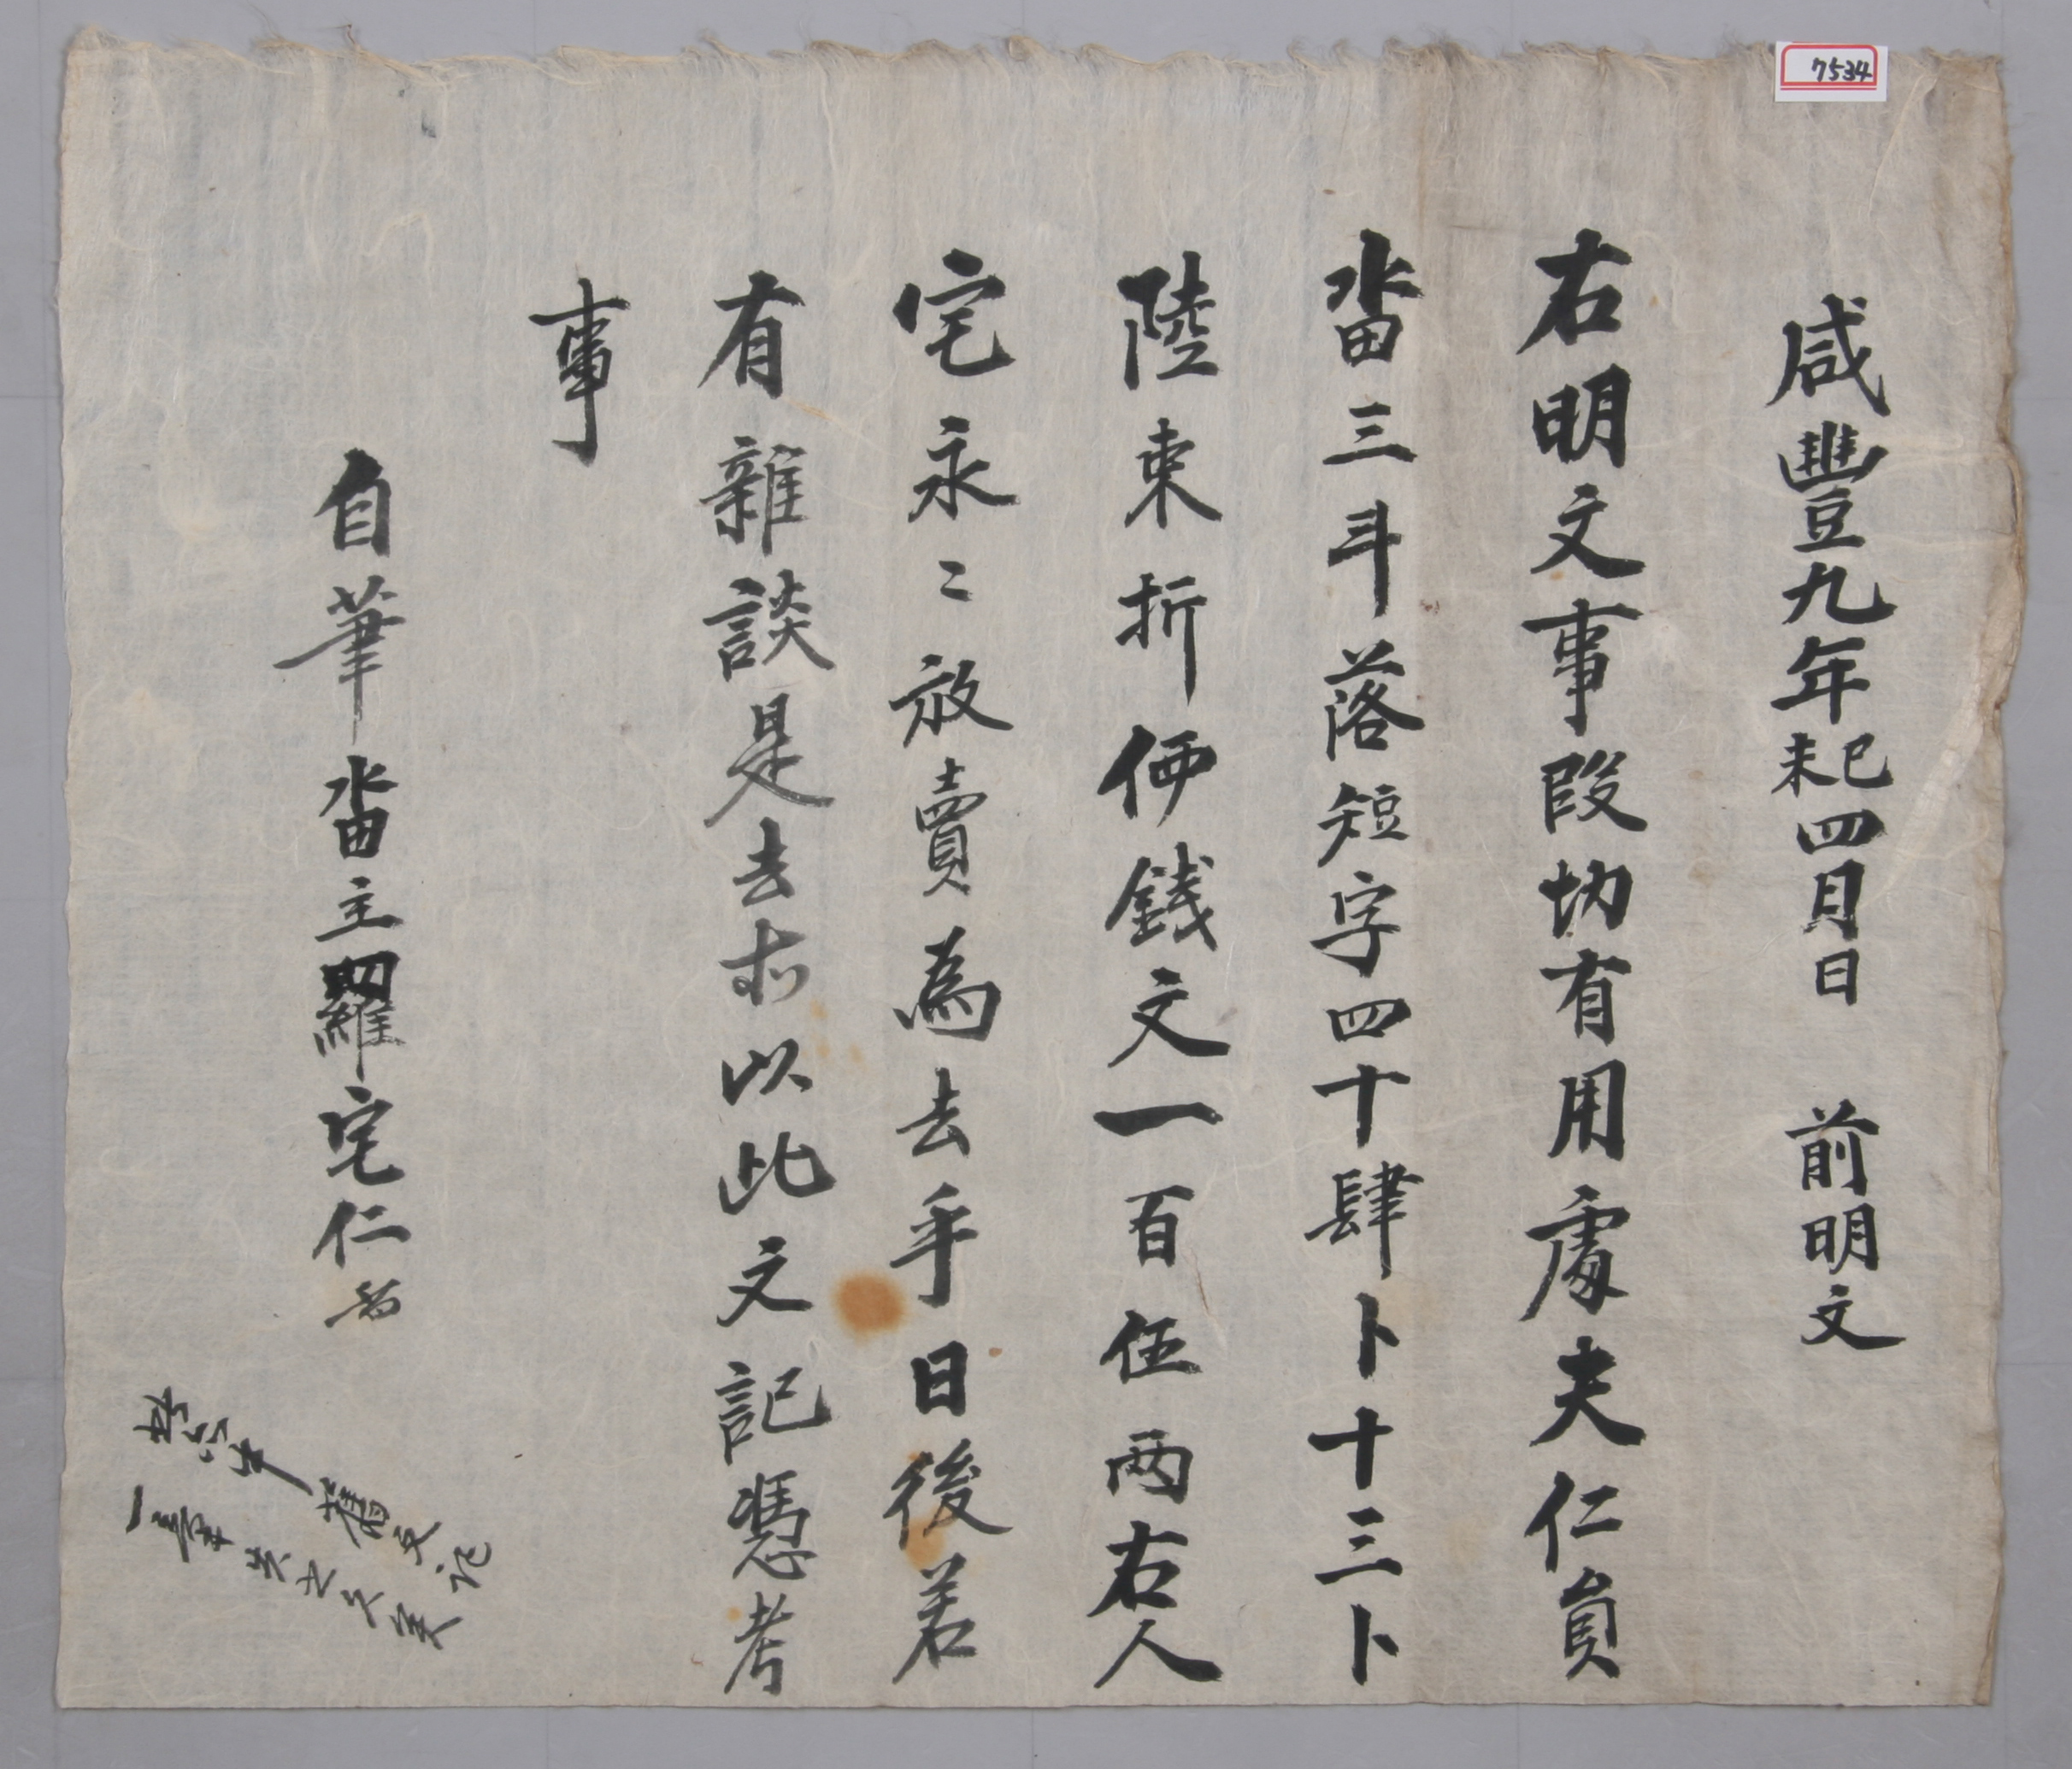 7534
咸豐九年己未四月日 前明文
右明文事段切有用處夫仁員
畓三斗落短字四十肆卜十三卜
陸束折価錢文一百伍兩右人
宅永〻放賣為去乎日後若
有雜談是去等以此文記憑考
事
自筆畓主羅宅仁
舊文記